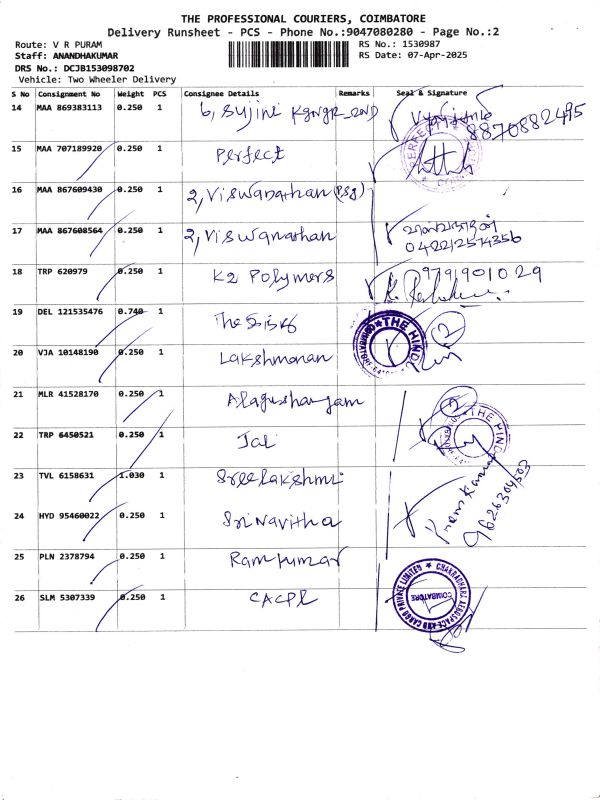 THE PROFESSIONAL COURIERS, COIMBATORE
Delivery Runsheet - PCS - Phone No.:9047080280 - Page No.:2
Route: V R PURAM
RS No.: 1530987
Staff: ANANDHAKUMAR
RS Date: 07-Apr-2025
DRS No.: DCJB153098702
Vehicle: Two Wheeler Delivery
S No Consignment No Weight PCS Consignee Details Remarks Seal & Signature
14 MAA 869383113 0.250 1 6, Sujini
8870882495
15 MAA 707189920 0.250 1 Perfect
16 MAA 867609430 0.250 1 2, Viswanathan (PSG)
17 MAA 867608564 0.250 1 2, Viswanathan
0422/2574356
18 TRP 620979 0.250 1 K2 Polymers 9791901029
19 DEL 121535476 0.740 1 The
THE HINDU
20 VJA 10148190 0.250 1 Lakshmanan
21 MLR 41528170 0.250 1
22 TRP 6450521 0.250 1 Jai
THE HINDU
23 TVL 6158631 1.030 1 Sreelakshmi
24 HYD 95460022 0.250 1 Srinavitha
Prem Kumar
9626304503
25 PLN 2378794 0.250 1 Ramkumar
26 SLM 5307339 0.250 1 CACPL
CHAKRADHARA AEROSPACE AND CARGO PRIVATE LIMITED
COIMBATORE